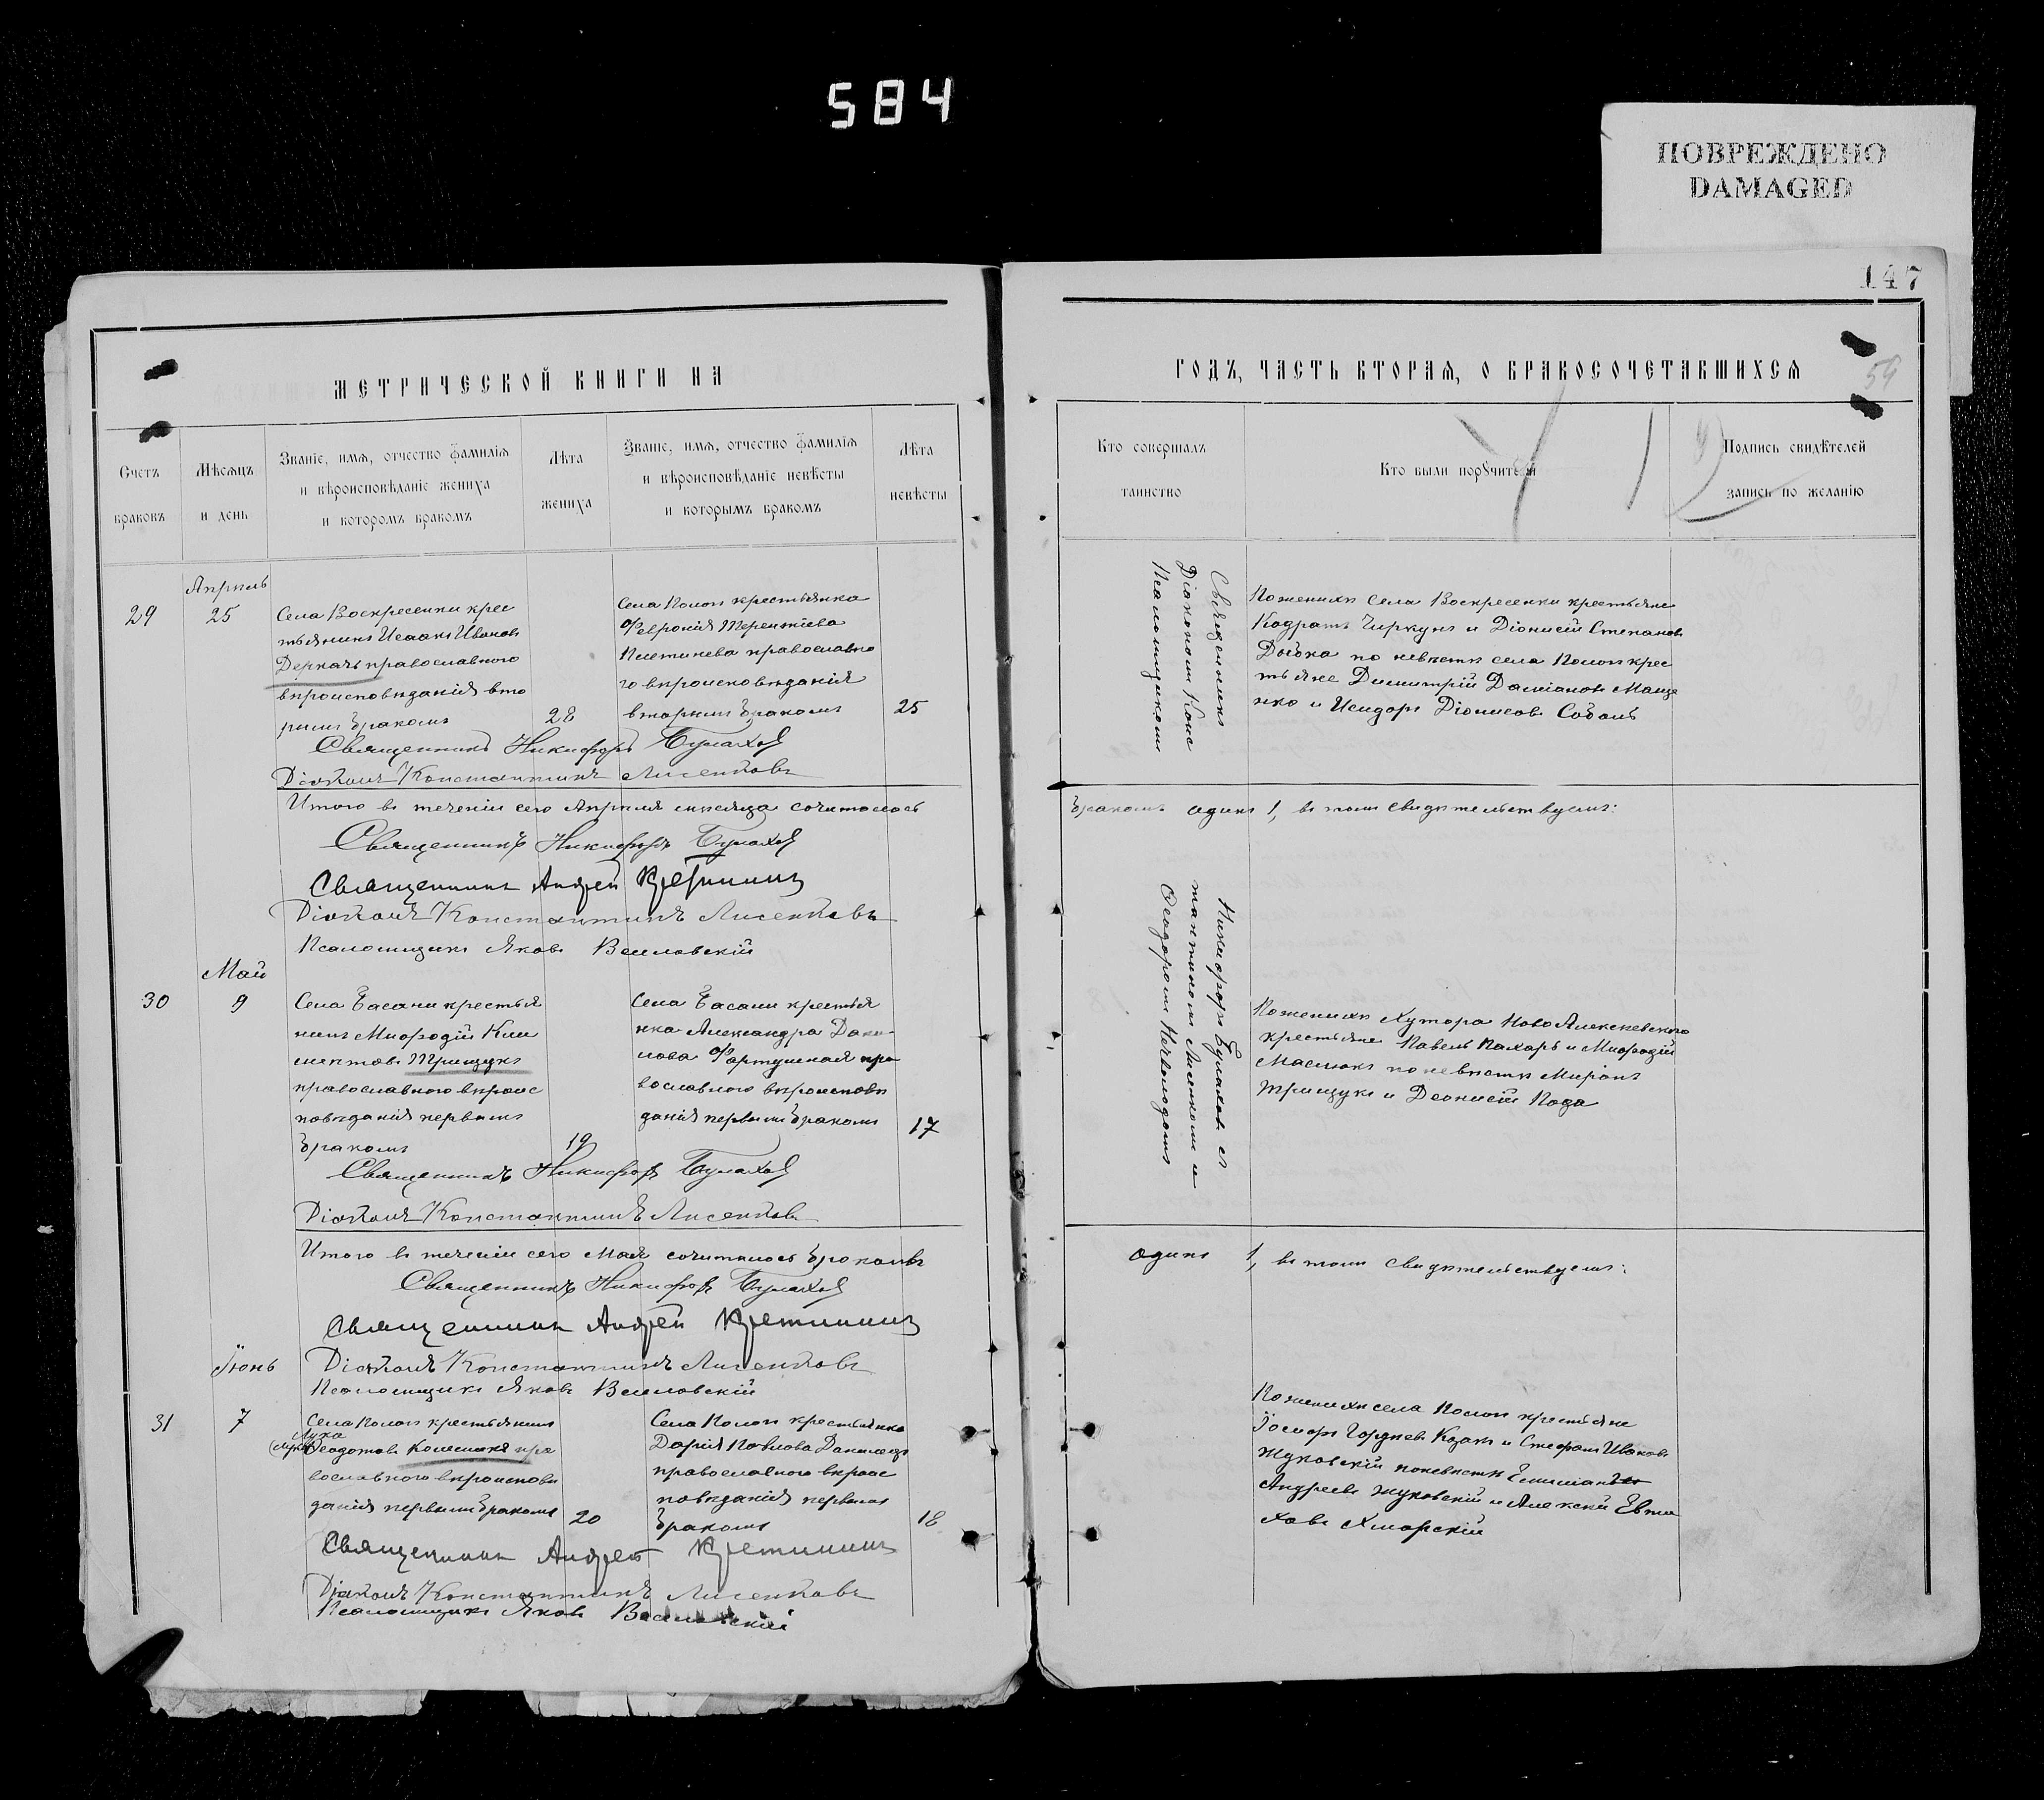 584
ПОВРЕЖДЕНО
DAMAGED
147
МЕТРИЧЕСКОЙ КНИГИ НА
ГОДЪ, ЧАСТЬ ВТОРАЯ, О БРАКОСОЧЕТАВШИХСЯ
59
Счетъ
браковъ
Мѣсяцъ
и день
Званіе, имя, отчество фамилія
и вѣроисповѣданіе жениха
и которомъ бракомъ
Лѣта
жениха
Званіе, имя, отчество фамилія
и вѣроисповѣданіе невѣсты
и которымъ бракомъ
Лѣта
невѣсты
Кто совершалъ
таинство
Кто были поручители
Подпись свидѣтелей
запись по желанію
Апрель
29
25
Села Воскресенки крес
тьянинъ Исаакъ Ивановъ
Деркачъ православного
вѣроисповѣданія вто
рымъ бракомъ
28
Села Пологи крестьянка
Феврония Терентіева
православно
го вѣроисповѣданія
вторымъ бракомъ
25
Священникъ Никифоръ Булахов
Діаконъ Константинъ Лисенковъ
Священникъ
Діакономъ Конс
Псаломщикомъ
По женихѣ села Воскресенки крестьяне
Кодратъ Чиркунъ и Діонисій Степановъ
по невѣсте села Пологи крес
тьяне Димитрій Даміановъ Маще
нко и Исидоръ Діонисовъ Соболь
Итого въ теченіи сего Апрѣля мѣсяца сочиталось
бракомъ одинъ 1, въ томъ свидѣтельствуемъ:
Священникъ Никифоръ Булахов
Священникъ Андрей Кретининъ
Діаконъ Константинъ Лисенковъ
Псаломщикъ Яковъ Веселовскій
Май
30
9
Села Басани крестья
нинъ Мифодій Кли
ментовъ Трищукъ
православного вѣроис
повѣданія первымъ
бракомъ
19
Села Басани крестья
нка Александра Дани
лова Фартушная пра
вославного вѣроисповѣ
данія первымъ бракомъ
17
Священникъ Никифоръ Булахов
Діаконъ Константинъ Лисенковъ
Никифоръ Булаховъ съ
тантиномъ Лисенкомъ и
Феодоромъ
По женихѣ хутора Ново Алексѣевского
крестьяне Павелъ Пахарь и Мифодій
Маслюкъ по невѣсте Миронъ
Трищукъ и Деонисій Кода
Итого въ теченіи сего Мая сочиталось бракомъ
одинъ 1, въ томъ свидѣтельствуемъ:
Священникъ Никифоръ Булахов
Священникъ Андрей Кретининъ
Іюнь
Діаконъ Константинъ Лисенковъ
Псаломщикъ Яковъ Веселовскій
31
7
Села Пологи крестьянинъ
Лука
(Лука) Феодотовъ Колесникъ пра
вославного вѣроисповѣ
данія первымъ бракомъ
20
Села Пологи крестьянка
Дарія Павлова
православного вѣроис
повѣданія первымъ
бракомъ
18
По женихѣ села Пологи крестьяне
Іосифъ Гордѣевъ Козакъ и Стефанъ Ивановъ
Жуковскій по невѣсте Емиліанъ
Андреевъ Жуковскій и Алексѣй Евти
ховъ Хмарскій
Священникъ Андрей Кретининъ
Діаконъ Константинъ Лисенковъ
Псаломщикъ Яковъ Веселовскій